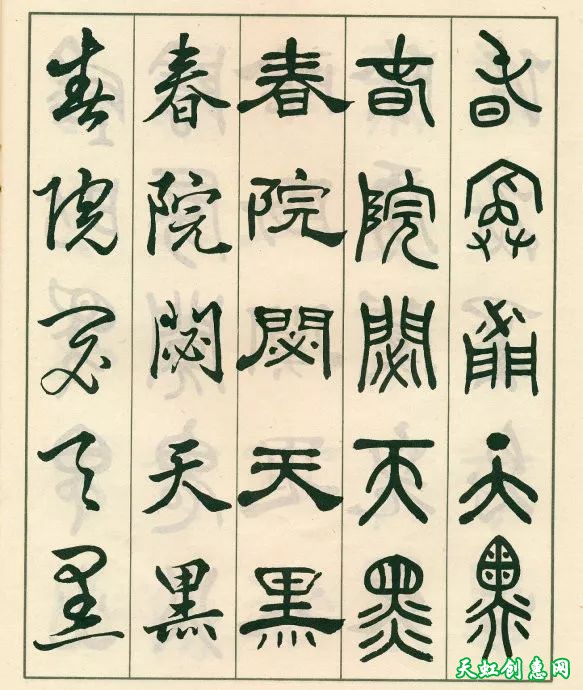 春院閟天黑
春院閟天黑
春院閟天黑
春院閟天黑
春院閟天黑
天虹创惠网